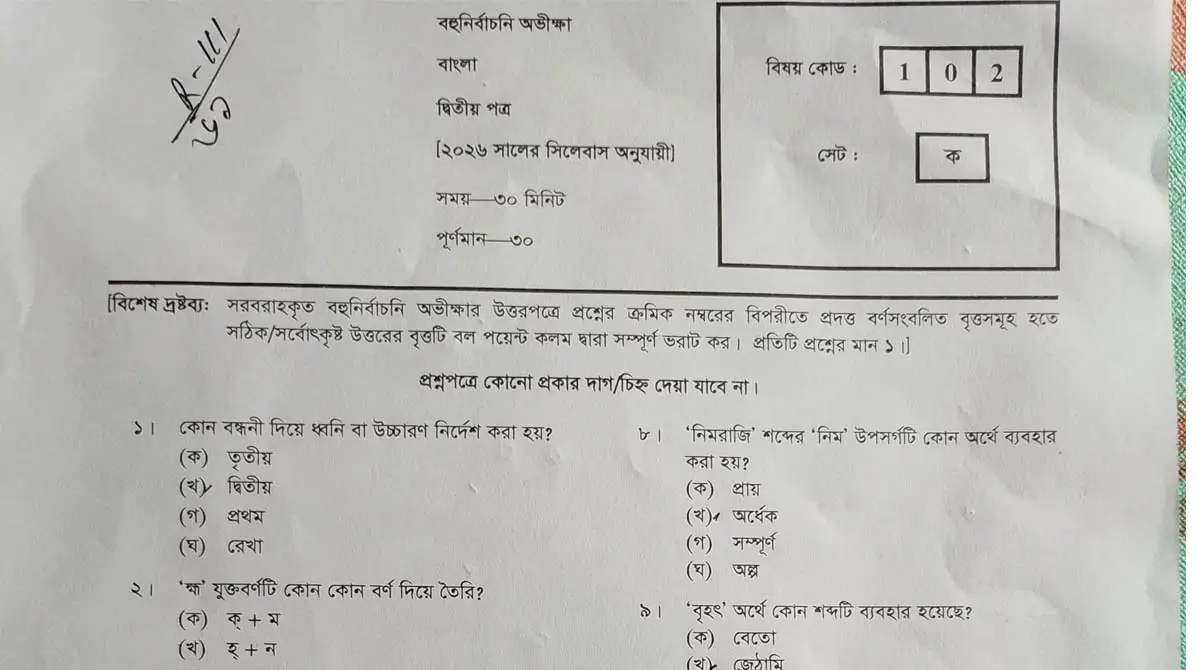 R-111
বহুনির্বাচনি অভীক্ষা
বাংলা
দ্বিতীয় পত্র
[২০২৬ সালের সিলেবাস অনুযায়ী]
সময়—৩০ মিনিট
পূর্ণমান—৩০
বিষয় কোড : 1 0 2
সেট : ক
[বিশেষ দ্রষ্টব্য: সরবরাহকৃত বহুনির্বাচনি অভীক্ষার উত্তরপত্রে প্রশ্নের ক্রমিক নম্বরের বিপরীতে প্রদত্ত বর্ণসংবলিত বৃত্তসমূহ হতে
সঠিক/সর্বোৎকৃষ্ট উত্তরের বৃত্তটি বল পয়েন্ট কলম দ্বারা সম্পূর্ণ ভরাট কর। প্রতিটি প্রশ্নের মান ১।]
প্রশ্নপত্রে কোনো প্রকার দাগ/চিহ্ন দেয়া যাবে না।
১। কোন বন্ধনী দিয়ে ধ্বনি বা উচ্চারণ নির্দেশ করা হয়?
(ক) তৃতীয়
(খ) দ্বিতীয়
(গ) প্রথম
(ঘ) রেখা
২। ‘হ্ম’ যুক্তবর্ণটি কোন কোন বর্ণ দিয়ে তৈরি?
(ক) ক্ + ম
(খ) হ্ + ন
৮। ‘নিমরাজি’ শব্দের ‘নিম’ উপসর্গটি কোন অর্থে ব্যবহার
করা হয়?
(ক) প্রায়
(খ) অর্ধেক
(গ) সম্পূর্ণ
(ঘ) অল্প
৯। ‘বৃহৎ’ অর্থে কোন শব্দটি ব্যবহার হয়েছে?
(ক) বেতো
(খ) জেঠামি